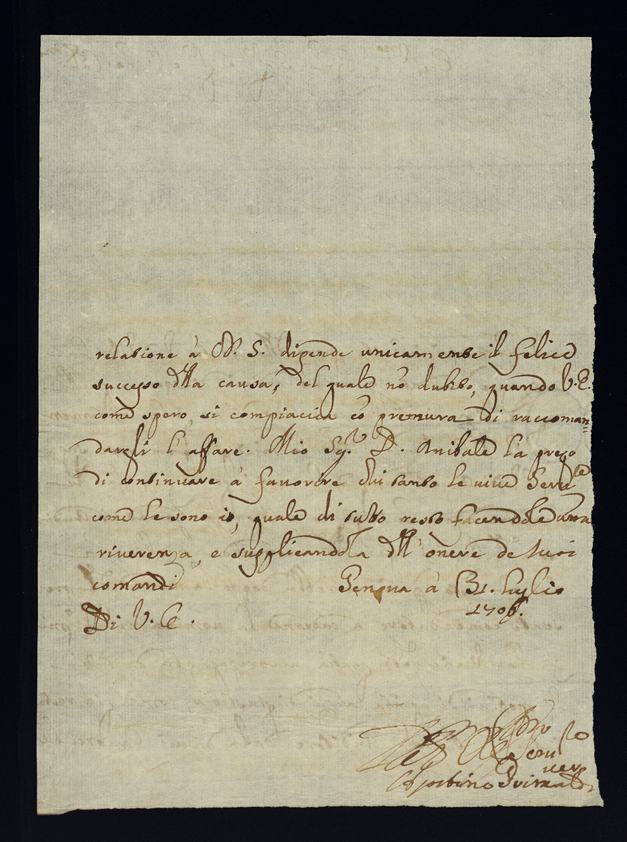 relatione à N. S. dipende unicamente il felice
successo dlla causa, del quale nõ dubito, quando V. E.
come spero, si compiaccia cõ premura di raccoman=
dargli l'affare. Mio Sigr. D. Anibale la prego
di continuare à favorire chi tanto le vive
come le sono io, quale di tutto resto facendole
riverenza, e supplicandola dll' onore de suoi
comandi Genova à 31. luglio
1706.
Di V. E.